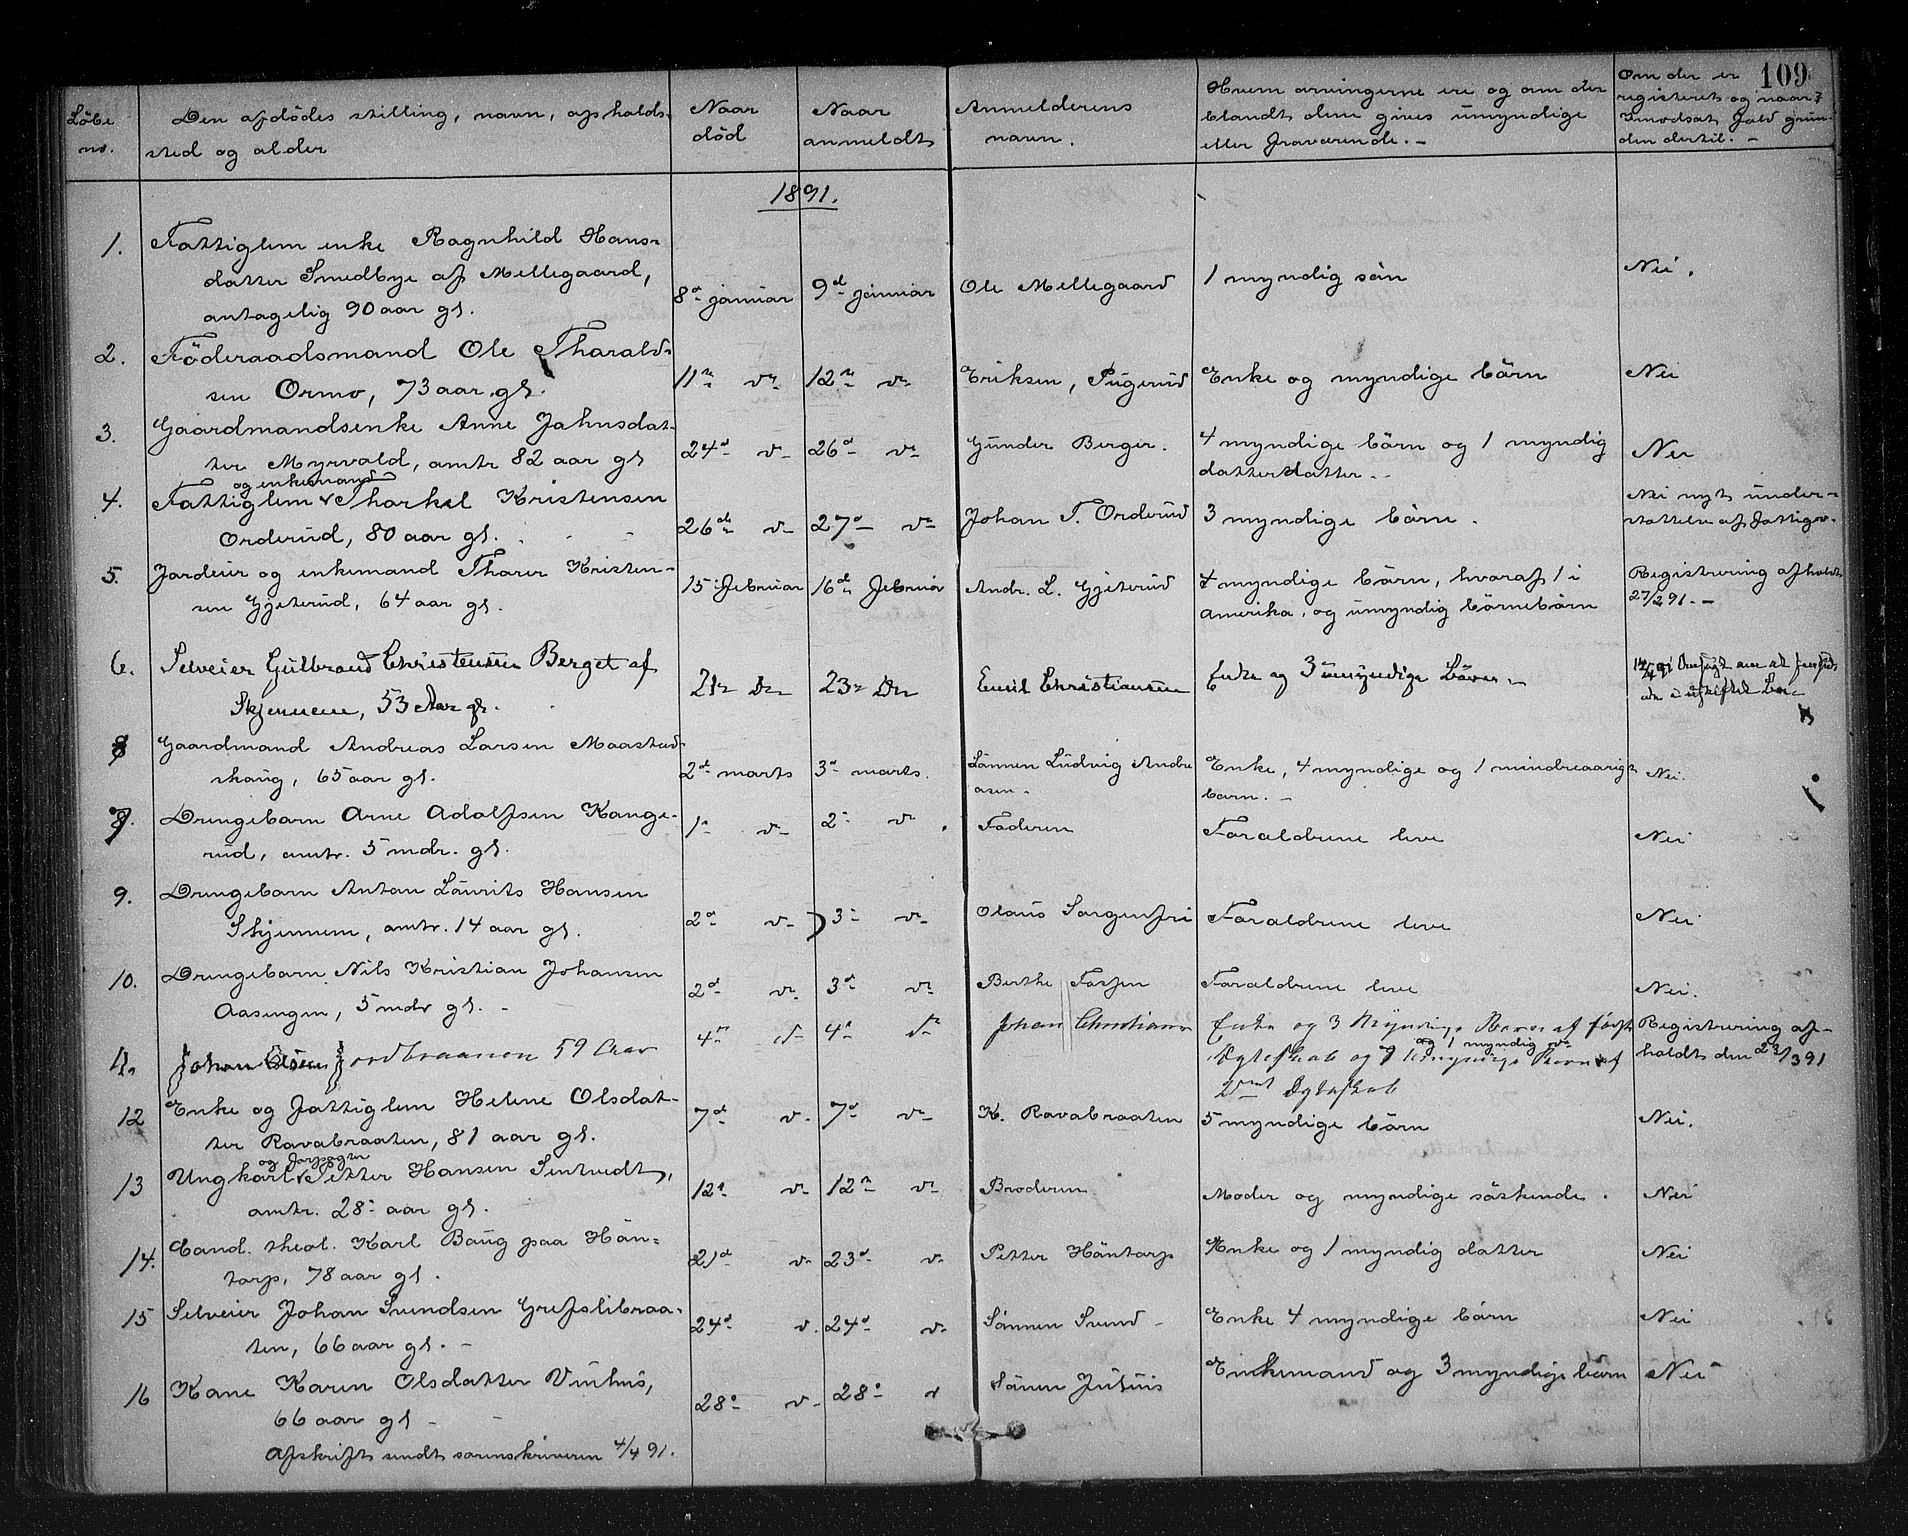 109
Løbe no.
Den afdødes stilling, navn, opholds-
sted og alder
Naar død
Naar anmeldt
Anmelderens navn.
Hvem arvingerne ere og om der
blandt dem gives umyndige
eller fraværende. –
Om der er
registeret og naar;
I modsat fald grun-
den dertil. –
1891.
1. Fattiglem enke Ragnhild Hans-
datter Smedbye af Mellegaard,
antagelig 90 aar gl.
8d januar 9d januar Ole Mellegaard 1 myndig søn Nei.
2. Föderaadsmand Ole Tharald-
sen Ormo, 73 aar gl.
11te do 12te do Eriksen, Pugerud Enke og myndige børn Nei
3. Gaardmandsenke Anne Jahnsdat-
ter Myrvold, omtr 82 aar gl
24d do 26d do Gunder Berger. 4 myndige børn og 1 myndig
datterdatter. Nei
og enkemand
4. Fattiglem Tharkel Kristensen
Orderud, 80 aar gl.
26de do 27d do Johan T. Orderud 3 myndige børn. Nei nyt under-
støttelse af fattigv.
5. Jordeier og enkemand Tharer Kristen-
sen Gjeterud, 64 aar gl.
15 februar 16de februar Andr. L. Gjeterud 4 myndige børn, hvoraf 1 i
Amerika, og umyndig børnebørn
Registrering afholdt
27/2 91. –
6. Selveier Gulbrand Christensen Berget af
Skjennem, 53 Aar gl.
21de Do 23de Do Emil Christiansen Enke og 3 umyndige Børn. –
8 Gaardmand Andreas Larsen Maastad-
shaug, 65 aar gl.
2d marts 3d marts. Sønnen Ludvig Andre
asen. Enke, 4 myndige og 1 mindreaarigt
barn. – Nei.
7. Drengebarn Arne Adolfsen Kange-
rud, omtr. 5 mdr. gl.
1te do 2 do Faderen Foraldrene leve Nei
9. Drengebarn Anton Laurits Hansen
Skjennem, omtr. 14 aar gl.
2d do 3 do Olaus Sorgenfri Foraldrene leve Nei
10. Drengebarn Nils Kristian Johansen
Aasengen, 5 mdr gl. –
2d do 3d do Berthe Fossen Foraldrene leve Nei.
11. Johan Olsen Jordbraaten 59 Aar
4de do 4d do Johan Christians Enke og 3 Myndige Børn af første
og 1 myndig do
Ægteskab og 7 Umyndige Børn af
2det Ægteskab
Registrering af-
holdt den 23/3 91
12 Enke og fattiglem Helene Olsdat-
ter Ravabraaten, 81 aar gl.
7d do 7d do K. Ravabraaten 5 myndige børn Nei.
og
13 Ungkarl Petter Hansen Sentvedt,
omtr. 28 aar gl.
12te do 12te do Broderen Moder og myndige søskende. Nei
14. Cand. theol. Karl Baug paa Høn-
torp, 78 aar gl.
21d do 23d do Petter Høntorp Enke og 1 myndig datter Nei
15 Selveier Johan Svendsen Grefslibraa-
ten, 66 aar gl. –
24d do 24d do Sønnen Svend Enke 4 myndige børn Nei
16 Kone Karen Olsdatter Vinhus,
66 aar gl –
28d do 28d do Sønnen Julius Enkemand og 3 myndige børn Nei
Afskrift sendt sorenskriveren 4/4 91.